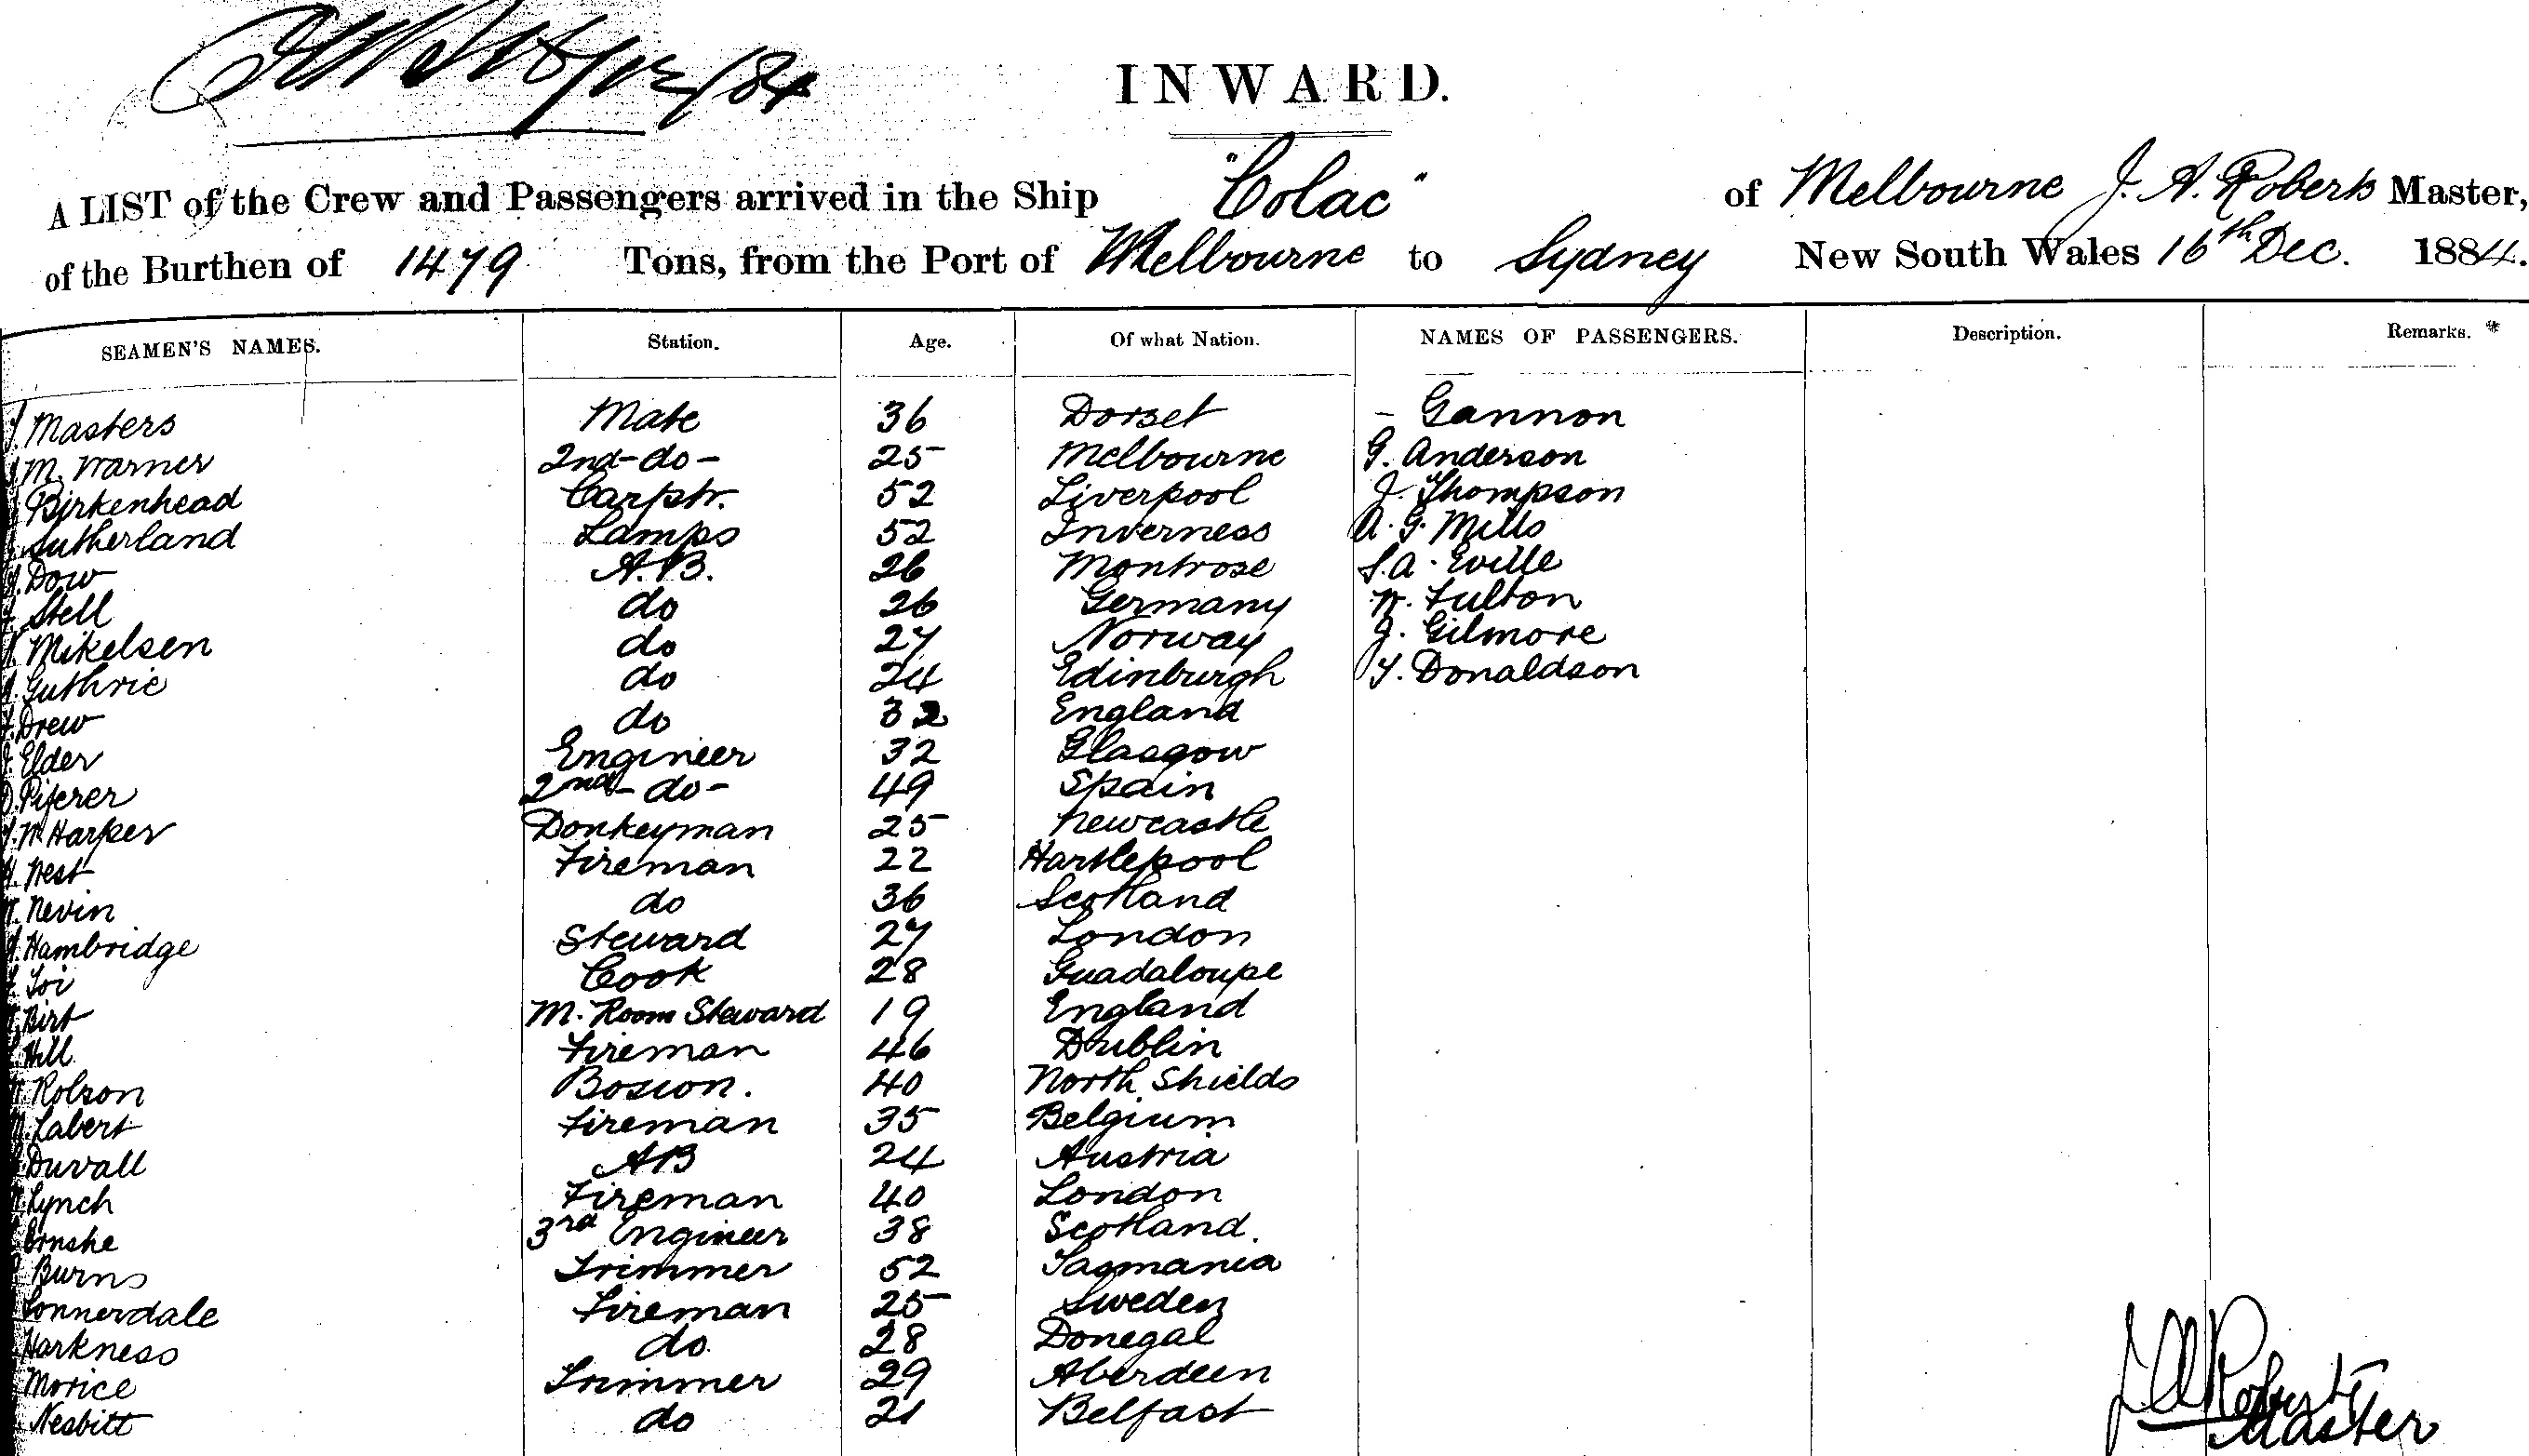 /12/84
INWARD.
A LIST of the Crew and Passengers arrived in the Ship "Colac" of Melbourne J. A. Roberts Master,
of the Burthen of 1479 Tons, from the Port of Melbourne to Sydney New South Wales 16th Dec. 1884.
SEAMEN'S NAMES. Station. Age. Of what Nation. NAMES OF PASSENGERS. Description. Remarks. *
Masters Mate 36 Dorset - Gannon
M. Warner 2nd -do- 25 Melbourne G. Anderson
Birkenhead Carptr. 52 Liverpool J. Thompson
Sutherland Lamps 52 Inverness A. G. Mills
Dow A.B. 26 Montrose S. A. Eville
Stell do 26 Germany W. Fulton
Mikelsen do 27 Norway J. Gilmore
Guthrie do 24 Edinburgh Y. Donaldson
Drew do 32 England
Elder Engineer 32 Glasgow
Piferer 2nd -do- 49 Spain
Harper Donkeyman 25 Newcastle
West Fireman 22 Hartlepool
Nevin do 36 Scotland
Hambridge Steward 27 London
Loi Cook 28 Guadaloupe
Birt M. Room Steward 19 England
Hill Fireman 46 Dublin
Robson Bosion. 40 North Shields
Labert Fireman 35 Belgium
Duvall AB 24 Austria
Lynch Fireman 40 London
3rd Engineer 38 Scotland.
Burns Trimmer 52 Tasmania
Lonnerdale Fireman 25 Sweden
Harkness do. 28 Donegal
Morice Trimmer 29 Aberdeen
Nesbitt do 21 Belfast
J A Roberts
Master